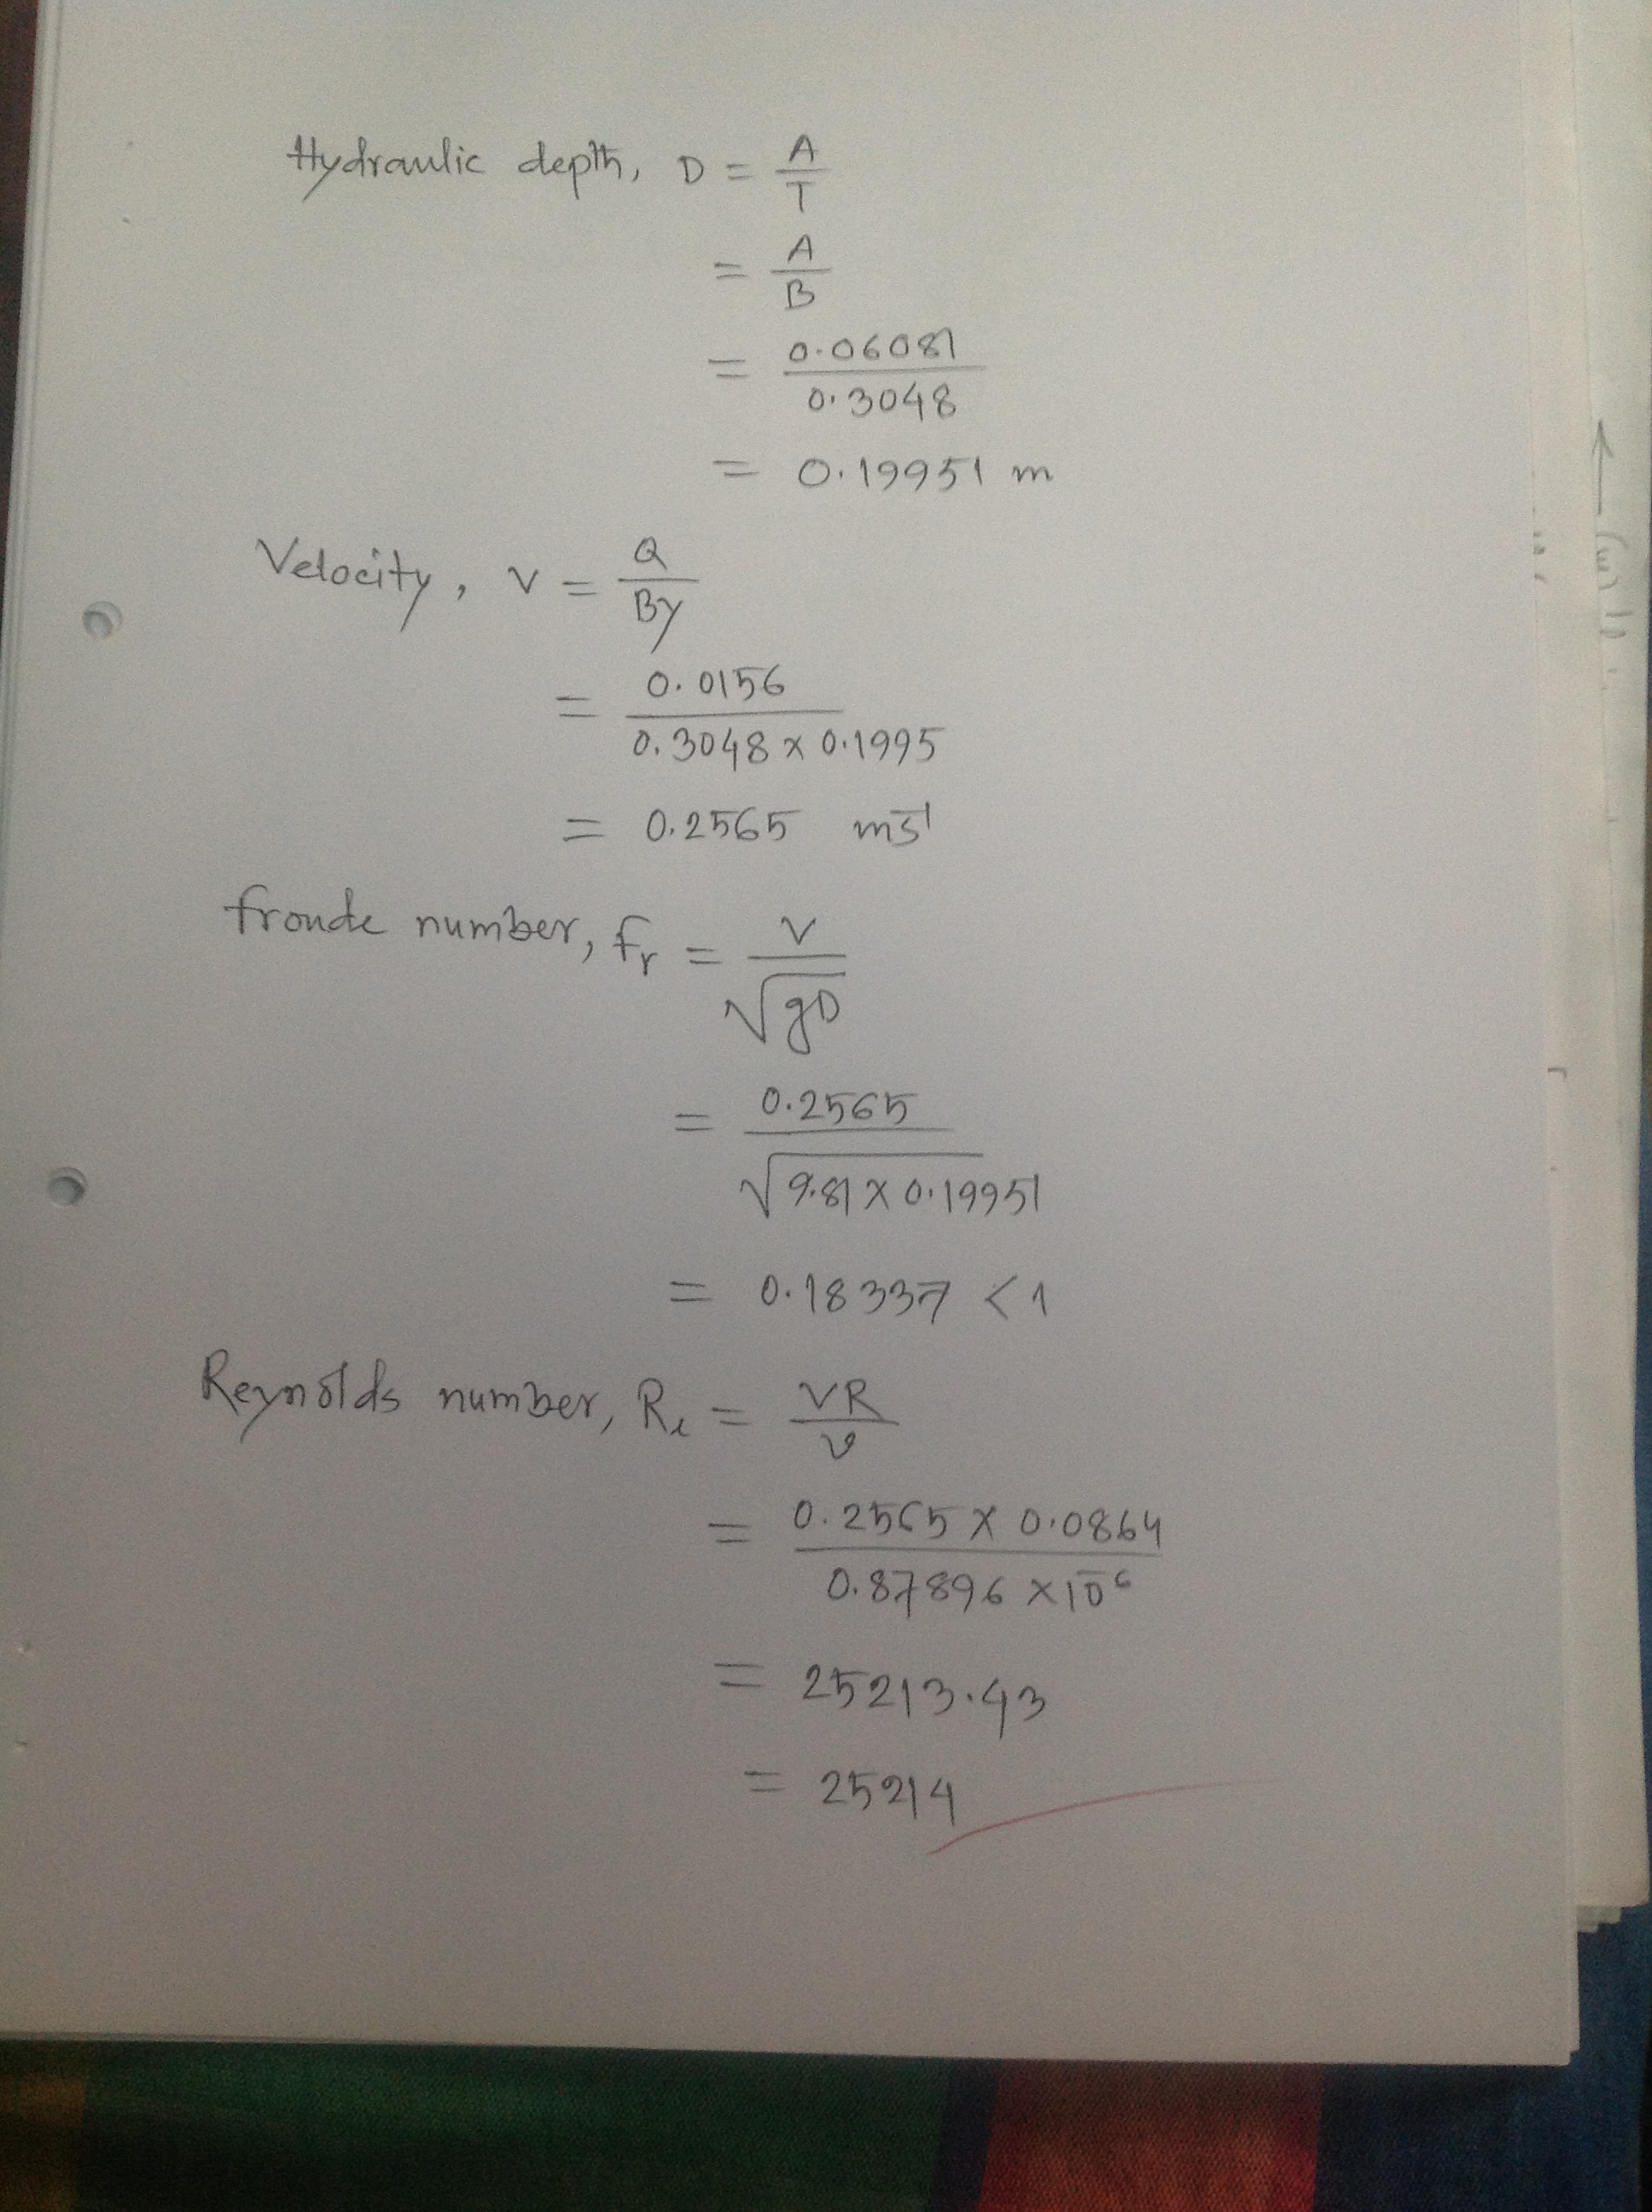 Hydraulic depth, D = A/T
= A/B
= 0.06081/0.3048
= 0.19951 m
Velocity, V = Q/By
= 0.0156/(0.3048 × 0.1995)
= 0.2565 ms⁻¹
froude number, fr = V/√gD
= 0.2565/√(9.81 × 0.19951)
= 0.18337 < 1
Reynolds number, Re = VR/ν
= (0.2565 × 0.0864)/(0.87896 × 10⁻⁶)
= 25213.43
= 25214